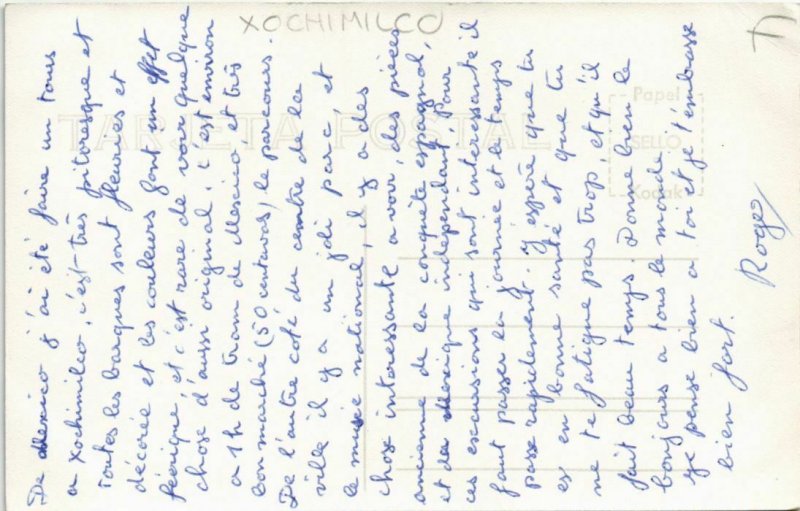 XOCHIMILCO
TARJETA POSTAL
Papel
SELLO
Kodak
De Mexico j'ai été faire un tours
a Xochimilco, c'est très pitoresque et
toutes les barques sont fleuries et
décorée et les couleurs font un effet
féerique, et c'est rare de voir quelque
chose d'aussi original, c'est environ
a 1h de tram de Mexico et très
bon marché (50 centavos) le parcours.
De l'autre coté du centre de la
ville il y a un joli parc, et
le musée national, il y a des
chose interessante a voir, des pièces
ancienne de la conquête espagnol,
et du Mexique independant. Pour
ces excursions qui sont interessante il
faut passer la journée et le temps
passe rapidement. J'espère que tu
es en bonne santé et que tu
ne te fatigue pas trop, et qu'il
fait beau temps. Donne bien le
bonjours a tous le monde
Je pense bien a toi et je t'embrasse
bien fort.
Roger